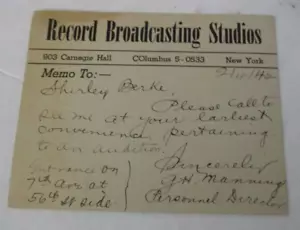 Record Broadcasting Studios
903 Carnegie Hall COlumbus 5-0533 New York
Memo To:—
Shirley Berke,
Please call to
see me at your earliest
convenience pertaining
to an audition.
Sincerely
Entrance on
7th Ave at
56th St side
G H Manning
Personnel Director